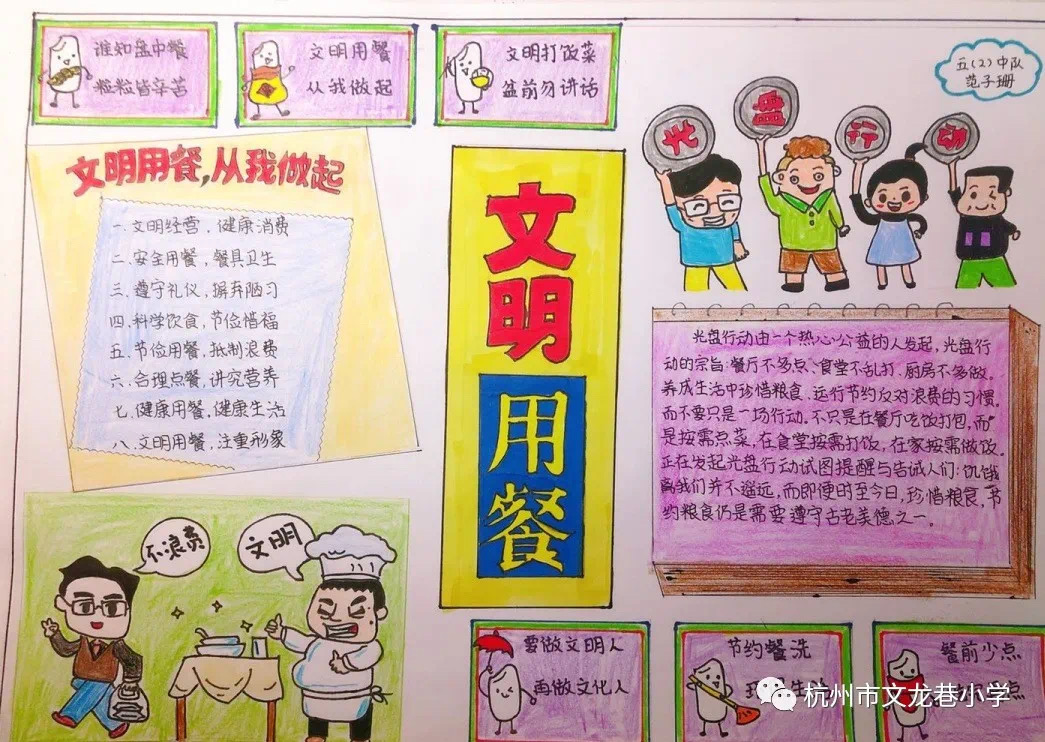 谁知盘中餐
粒粒皆辛苦
文明用餐
从我做起
文明打饭菜
盆前勿讲话
五(2)中队
范子珊
光盘行动
文明用餐,从我做起
一.文明经营,健康消费
二.安全用餐,餐具卫生
三.遵守礼仪,摒弃陋习
四.科学饮食,节俭惜福
五.节俭用餐,抵制浪费
六.合理点餐,讲究营养
七.健康用餐,健康生活
八.文明用餐,注重形象
文明
用餐
光盘行动由一个热心公益的人发起,光盘行
动的宗旨:餐厅不多点、食堂不乱打、厨房不多做。
养成生活中珍惜粮食、运行节约反对浪费的习惯,
而不要只是一场行动。不只是在餐厅吃饭打包,而
是按需点菜,在食堂按需打饭,在家按需做饭。
正在发起光盘行动试图提醒与告诫人们:饥饿
离我们并不遥远,而即便时至今日,珍惜粮食,节
约粮食仍是需要遵守古老美德之一。
不浪费
文明
要做文明人
再做文化人
节约餐洗
餐前少点
点
杭州市文龙巷小学